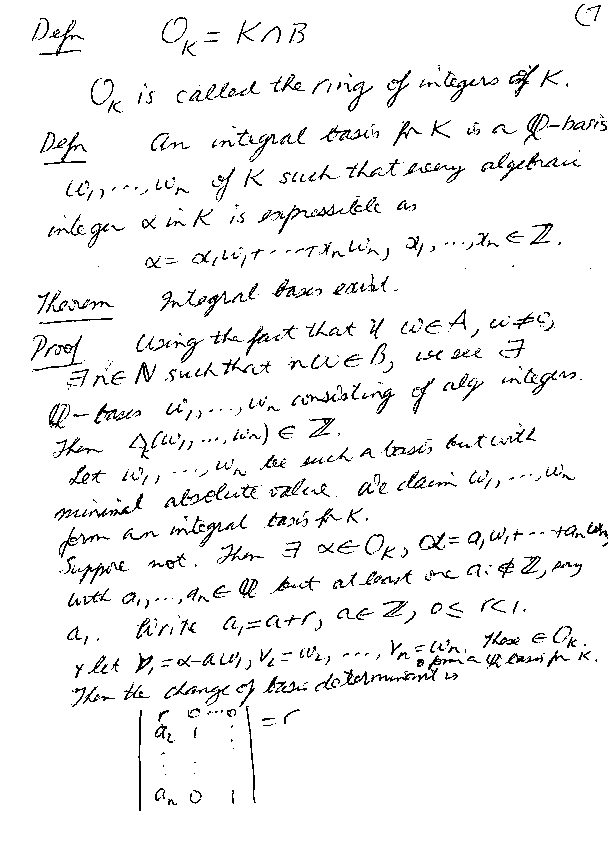 (7
Defn O_K = K∩B
O_K is called the ring of integers of K.
Defn An integral basis for K is a Q-basis
ω₁, ..., ωₙ of K such that every algebraic
integer α in K is expressible as
α = x₁ω₁ + ... + xₙωₙ, x₁, ..., xₙ ∈ ℤ.
Theorem Integral bases exist.
Proof Using the fact that if ω∈A, ω≠0,
∃ n∈N such that nω∈B, we see ∃
Q-bases ω₁, ..., ωₙ consisting of alg integers.
Then Δ_K(ω₁, ..., ωₙ) ∈ ℤ.
Let ω₁, ..., ωₙ be such a basis but with
minimal absolute value. We claim ω₁, ..., ωₙ
form an integral basis for K.
Suppose not. Then ∃ α∈O_K, α = a₁ω₁ + ... + aₙωₙ
with a₁, ..., aₙ∈Q but at least one aᵢ ∉ ℤ, say
a₁. Write a₁ = a+r, a∈ℤ, 0≤r<1.
& let v₁ = α-aω₁, v₂ = ω₂, ..., vₙ = ωₙ. These ∈ O_K.
& form a Q basis for K.
Then the change of basis determinant is
| r 0 ... 0 | = r
| a₂ 1 ⋮ |
| ⋮ ⋮ ⋮ |
| aₙ 0 1 |